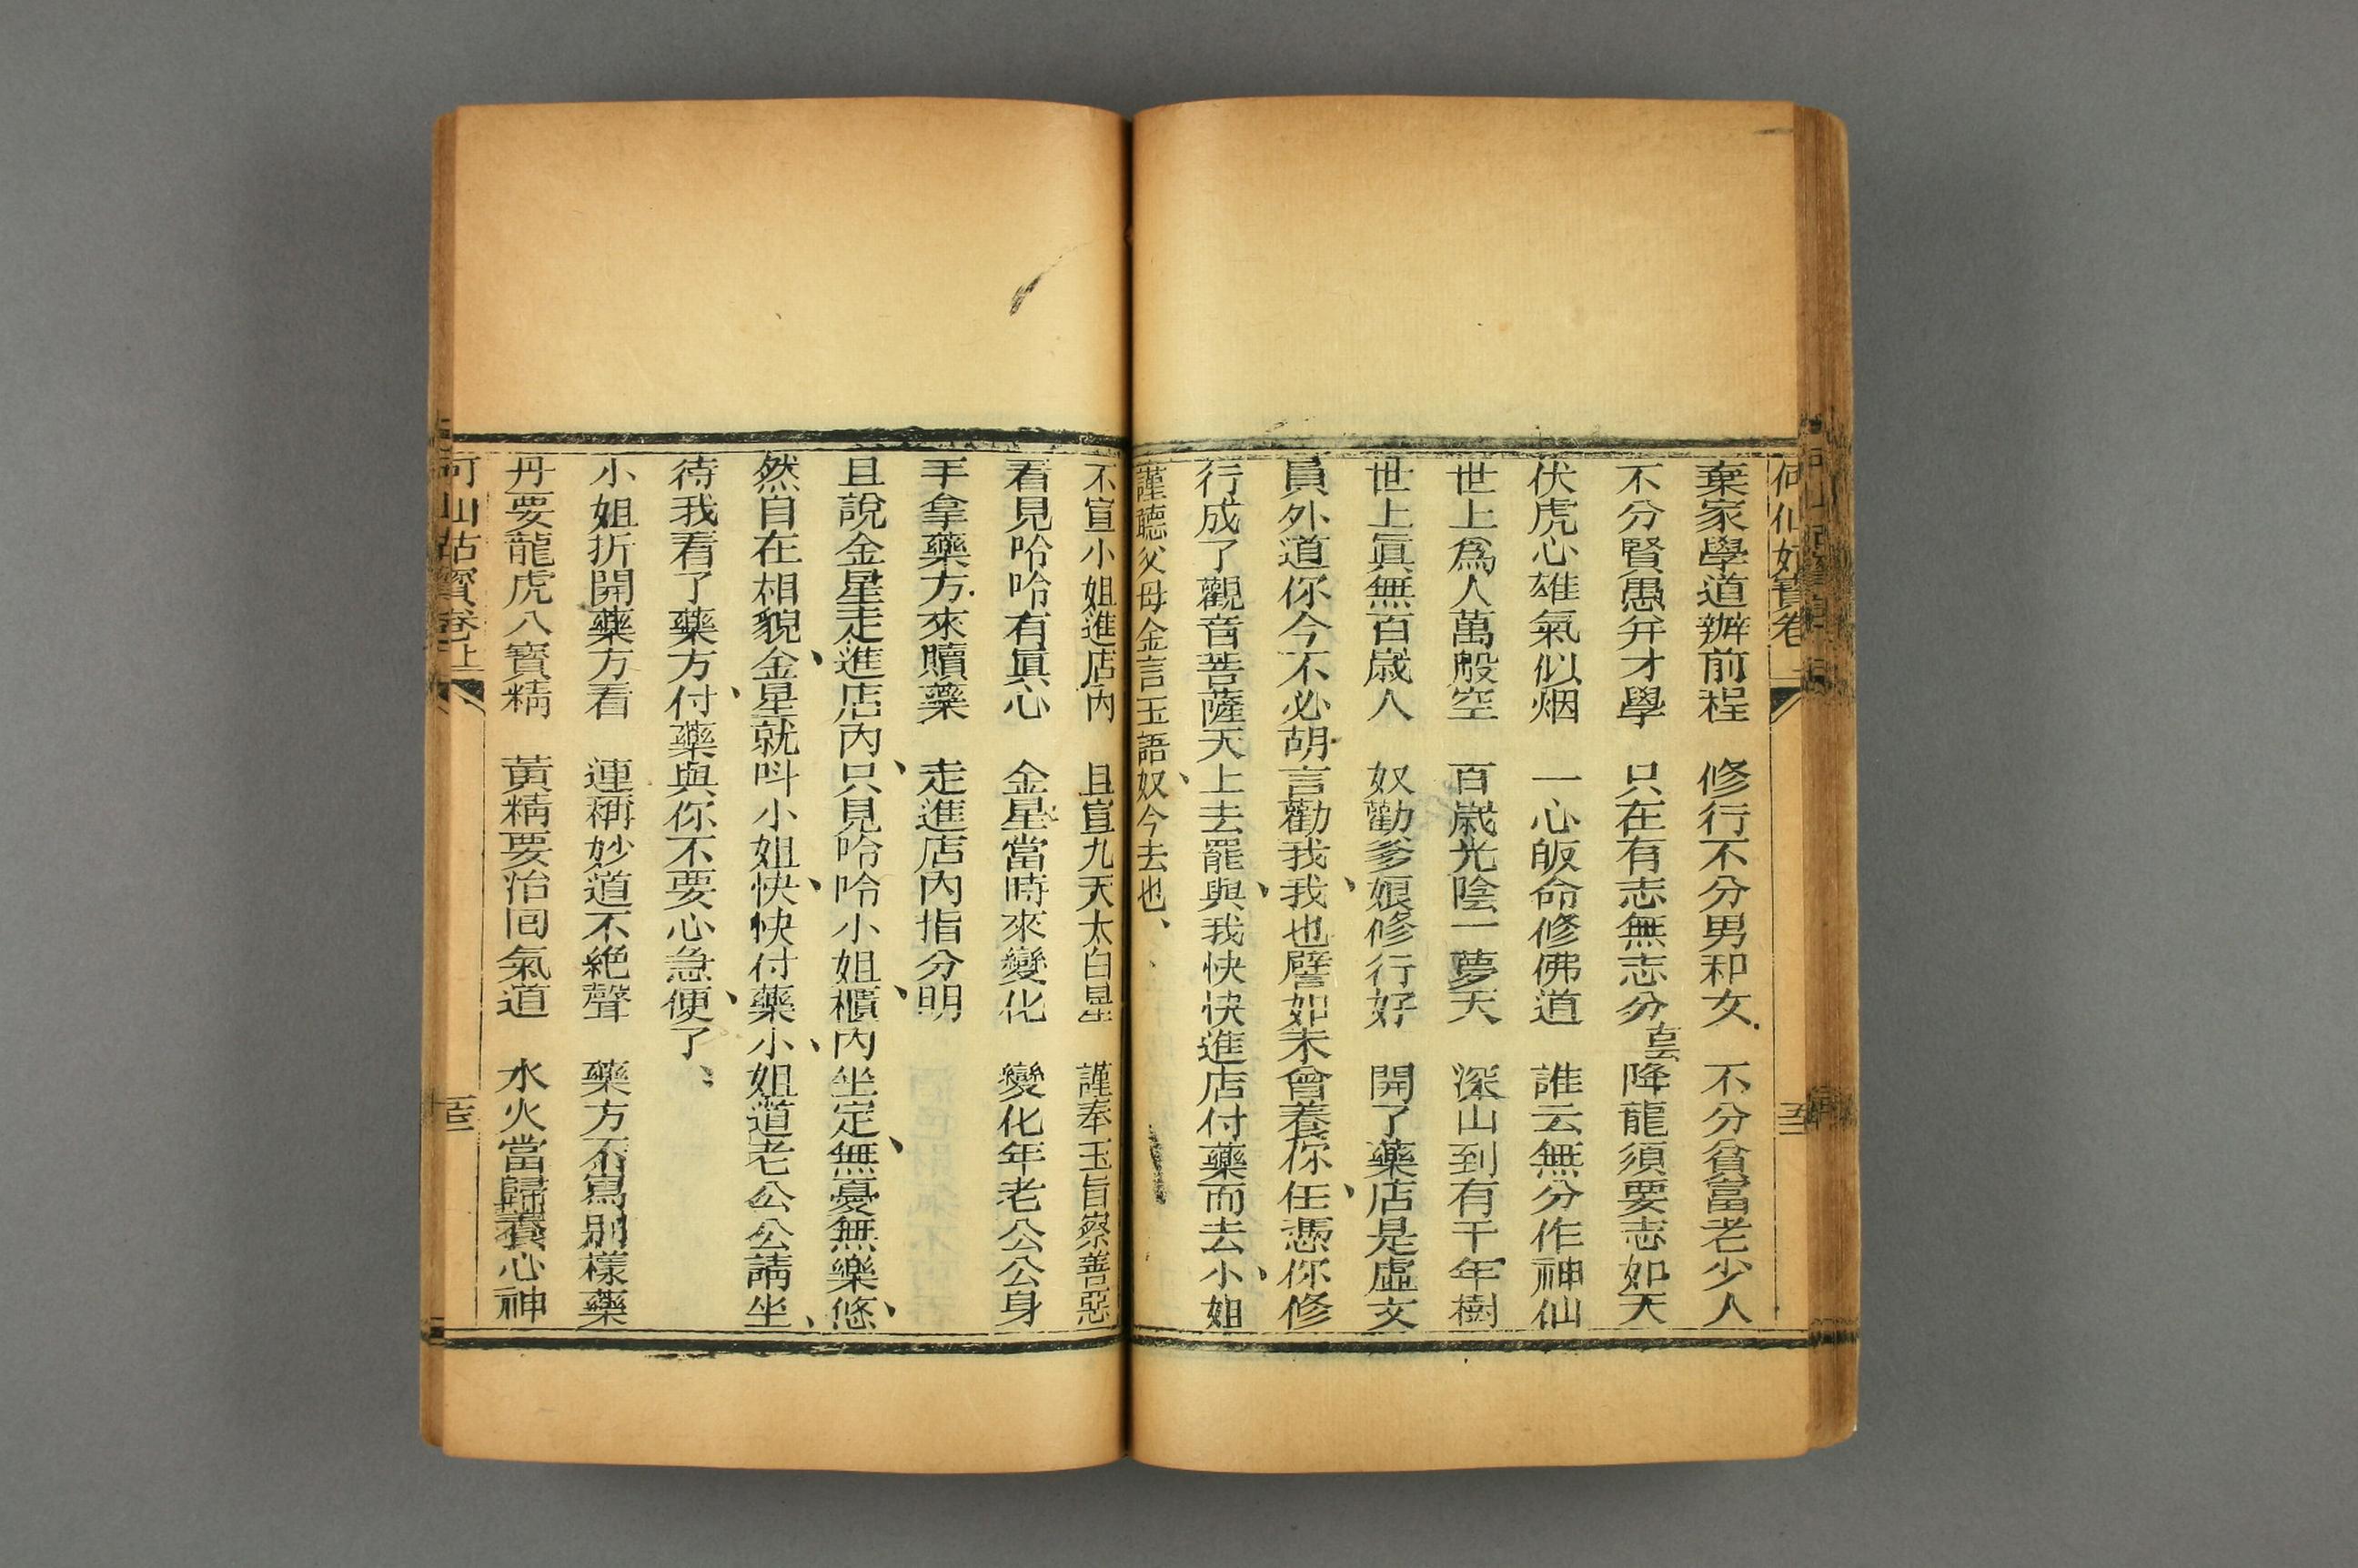 何仙姑寶卷
棄家學道辦前程 修行不分男和女 不分貧富老少人
不分賢愚并才學 只在有志無志分 古云降龍須要志如天
伏虎心雄氣似烟 一心皈命修佛道 誰云無分作神仙
世上爲人萬般空 百歲光陰一夢天 深山到有千年樹
世上眞無百歲人 奴勸爹娘修行好 開了藥店是虛文
員外道你今不必胡言勸我、我也譬如未曾養你、任憑你修
行成了觀音菩薩天上去罷、與我快快進店付藥而去、小姐
謹聽父母金言玉語、奴今去也、
不宣小姐進店内 且宣九天太白星 謹奉玉旨察善惡
看見哈哈有眞心 金星當時來變化 變化年老公公身
手拿藥方來贖藥 走進店内指分明
且說金星走進店内、只見哈哈小姐、櫃内坐定、無憂無樂、悠
然自在相貌、金星就叫小姐、快快付藥、小姐道老公公請坐、
待我看了藥方、付藥與你不要心急、便了、
小姐折開藥方看 連稱妙道不絕聲 藥方不寫别樣藥
丹要龍虎八寳精 黃精要治回氣道 水火當歸養心神
何仙姑寶卷上